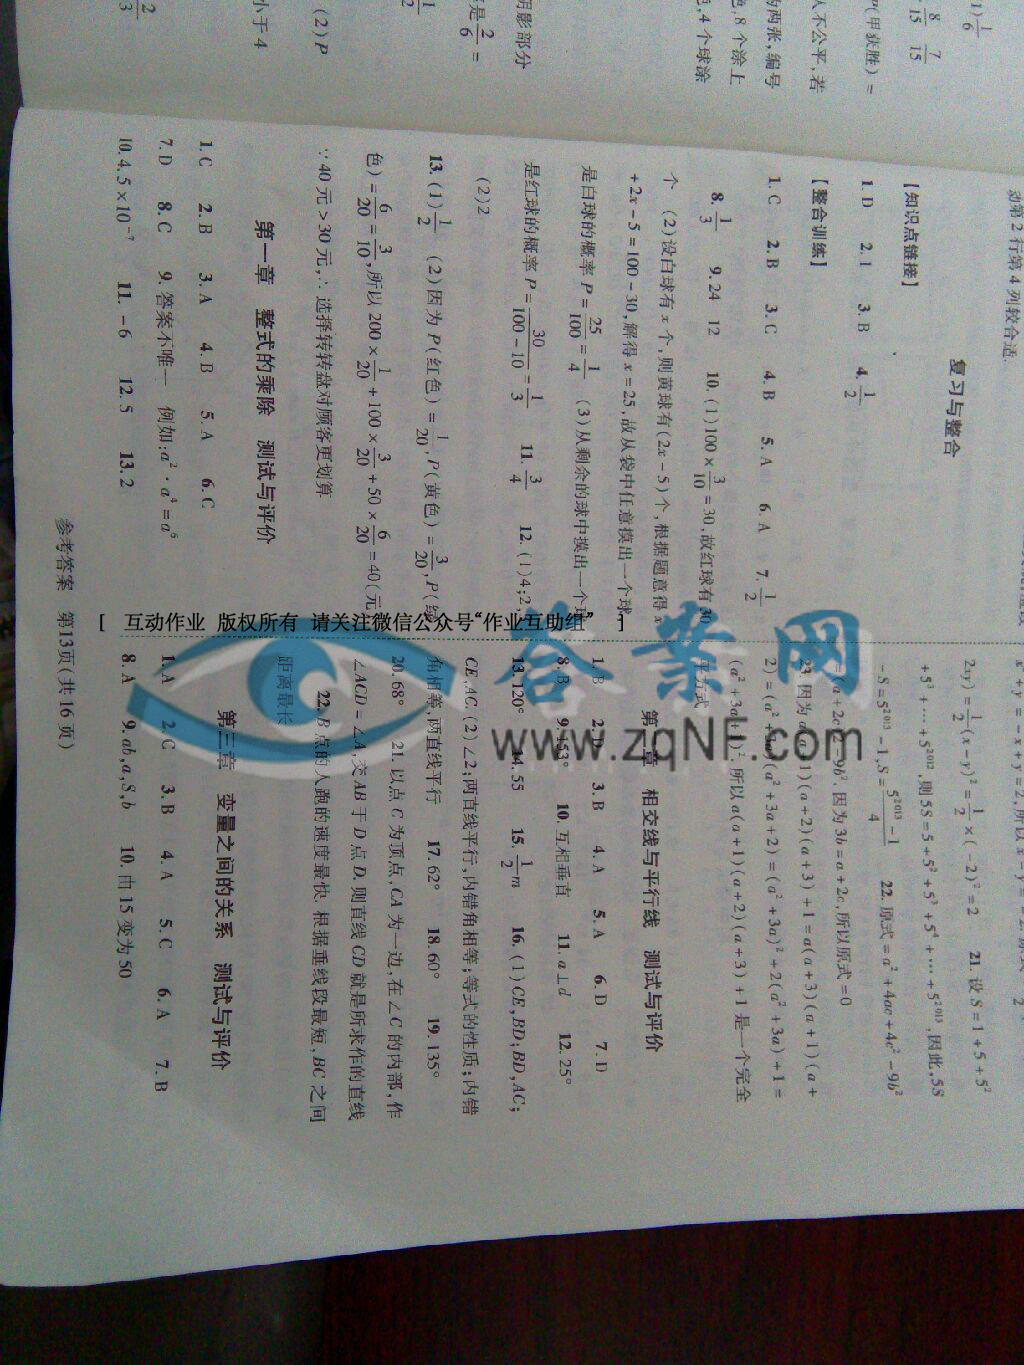 动第2行第4列较合适.
复习与整合
【知识点链接】
1. D 2. 1 3. B 4. 1/2
【整合训练】
1. C 2. B 3. C 4. B 5. A 6. A 7. 1/2
8. 1/3 9. 24 12 10. (1)100×3/10=30,故红球有30
个 (2)设白球有x个,则黄球有(2x-5)个,根据题意得x
+2x-5=100-30,解得x=25,故从袋中任意摸出一个球
是白球的概率P=25/100=1/4 (3)从剩余的球中摸出一个球
是红球的概率P=30/(100-10)=1/3 11. 3/4 12. (1)4;2,
(2)2
13. (1)1/2 (2)因为P(红色)=1/20,P(黄色)=3/20,P(绿
色)=6/20=3/10,所以200×1/20+100×3/20+50×6/20=40(元
∵40元>30元,∴选择转转盘对顾客更划算
第一章 整式的乘除 测试与评价
1. C 2. B 3. A 4. B 5. A 6. C
7. D 8. C 9. 答案不唯一 例如:a²·a⁴=a⁶
10. 4.5×10⁻⁷ 11. -6 12. 5 13. 2
2xy)=1/2(x-y)²=1/2×(-2)²=2 21. 设S=1+5+5²
+5³+…+5²⁰¹²,则5S=5+5²+5³+5⁴+…+5²⁰¹³,因此,5S
-S=5²⁰¹³-1,S=(5²⁰¹³-1)/4 22. 原式=a²+4ac+4c²-9b²
=(a+2c)²-9b²,因为3b=a+2c,所以原式=0
23. 因为a(a+1)(a+2)(a+3)+1=a(a+3)(a+1)(a+
2)=(a²+3a)(a²+3a+2)=(a²+3a)²+2(a²+3a)+1=
(a²+3a+1)²,所以a(a+1)(a+2)(a+3)+1是一个完全
平方式
章 相交线与平行线 测试与评价
1. B 2. D 3. B 4. A 5. A 6. D 7. D
8. B 9. 53° 10. 互相垂直 11. a⊥d 12. 25°
13. 120° 14. 55 15. 1/2m 16. (1)CE,BD;BD,AC;
CE,AC. (2)∠2;两直线平行,内错角相等;等式的性质;内错
角相等,两直线平行 17. 62° 18. 60° 19. 135°
20. 68° 21. 以点C为顶点,CA为一边,在∠C的内部,作
∠ACD=∠A,交AB于D点D.则直线CD就是所求作的直线
22. B点的人跑的速度最快.根据垂线段最短,BC之间
距离最长
第三章 变量之间的关系 测试与评价
1. A 2. C 3. B 4. A 5. C 6. A 7. B
8. A 9. ab,a,S,b 10. 由15变为50
参考答案 第13页(共16页)
[ 互动作业 版权所有 请关注微信公众号“作业互助组” ]
答案网
www.zqNF.com